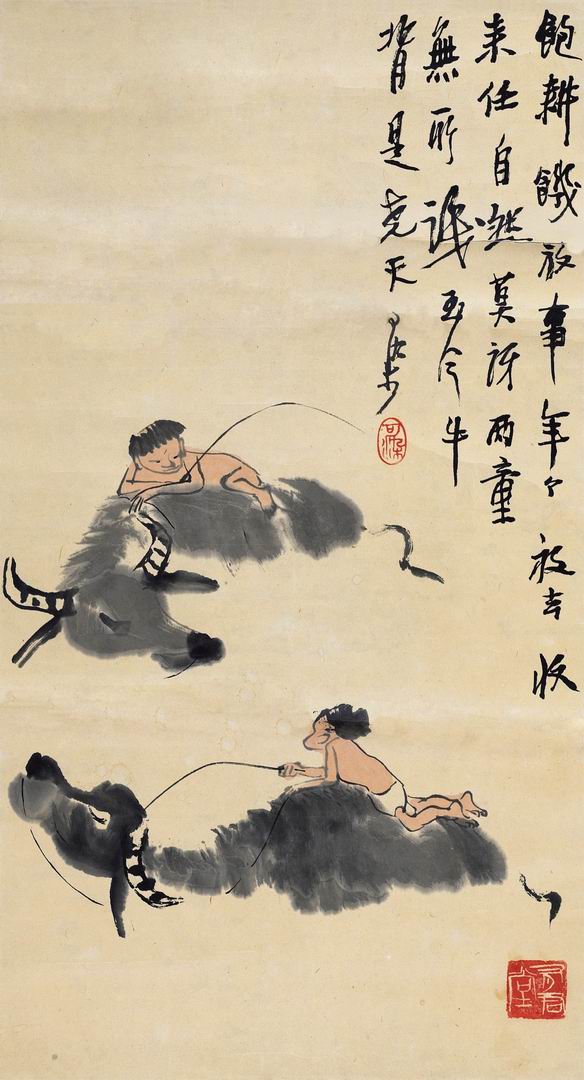 飽耕饑放事年々放去收
来任自然莫訝兩童
無所識至今牛
背是堯天 可染
可染
有君堂